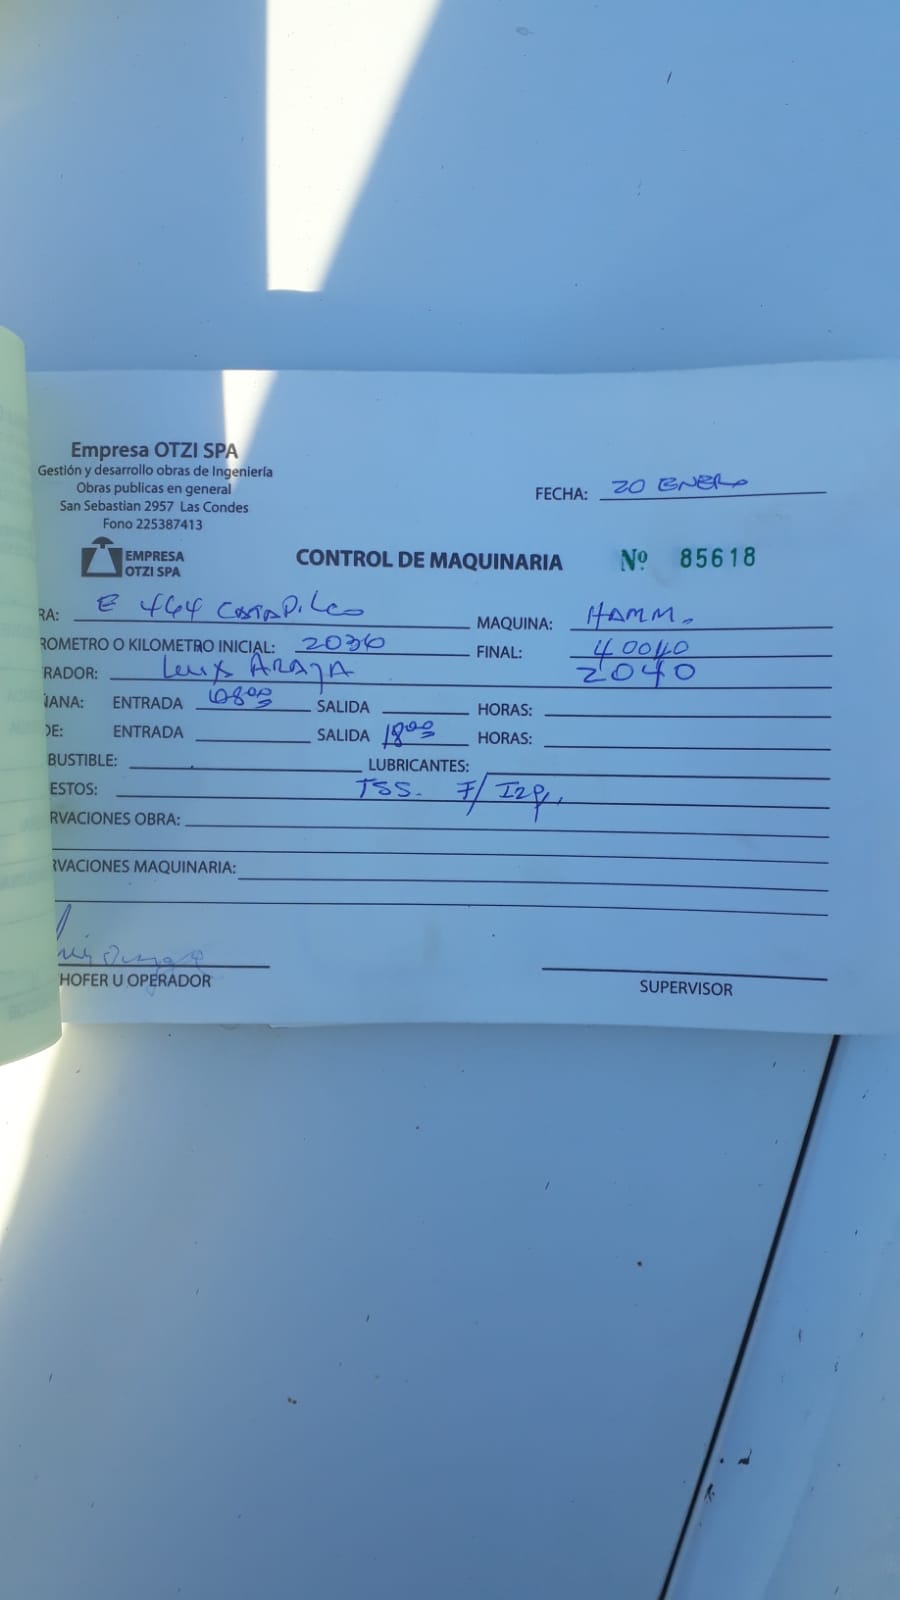 Empresa OTZI SPA
Gestión y desarrollo obras de Ingeniería
Obras publicas en general
San Sebastian 2957 Las Condes
Fono 225387413
FECHA: 20 ENERO
EMPRESA
OTZI SPA
CONTROL DE MAQUINARIA Nº 85618
RA: E 464 MAQUINA: HAMM.
ROMETRO O KILOMETRO INICIAL: FINAL: 40040
RADOR: Luis ARAYA 2040
ÑANA: ENTRADA 08:00 SALIDA HORAS:
DE: ENTRADA SALIDA 18:00 HORAS:
BUSTIBLE: LUBRICANTES:
ESTOS: TSS. F/ Izq.
RVACIONES OBRA:
RVACIONES MAQUINARIA:
HOFER U OPERADOR SUPERVISOR